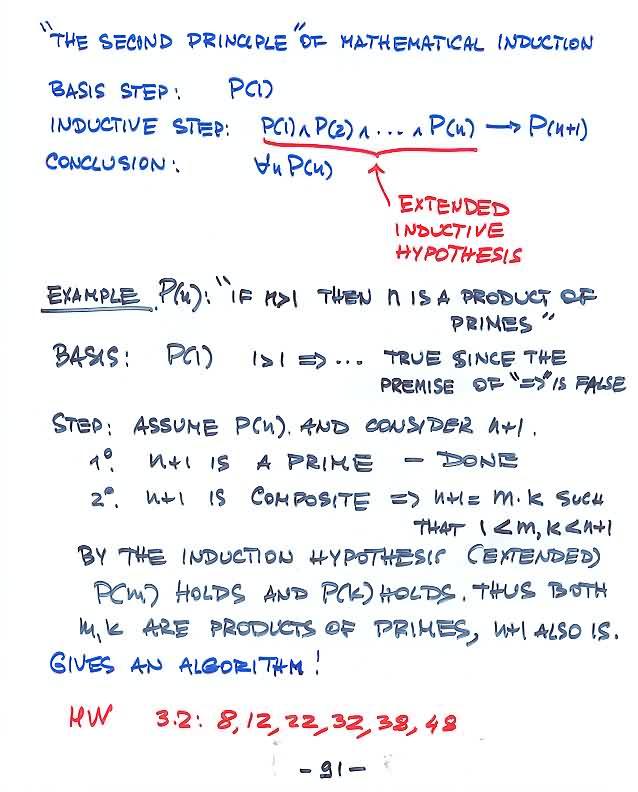 "THE SECOND PRINCIPLE" OF MATHEMATICAL INDUCTION
BASIS STEP: P(1)
INDUCTIVE STEP: P(1) ∧ P(2) ∧ . . . . ∧ P(n) → P(n+1)
CONCLUSION: ∀n P(n)
EXTENDED
INDUCTIVE
HYPOTHESIS
EXAMPLE P(n): "IF n>1 THEN n IS A PRODUCT OF
PRIMES"
BASIS: P(1) 1>1 => ... TRUE SINCE THE
PREMISE OF "=>" IS FALSE
STEP: ASSUME P(n). AND CONSIDER n+1.
1°. n+1 IS A PRIME – DONE
2°. n+1 IS COMPOSITE => n+1 = m·k SUCH
THAT 1<m,k<n+1
BY THE INDUCTION HYPOTHESIS (EXTENDED)
P(m) HOLDS AND P(k) HOLDS. THUS BOTH
m,k ARE PRODUCTS OF PRIMES, n+1 ALSO IS.
GIVES AN ALGORITHM!
HW 3.2: 8,12,22,32,38,48
- 91 -